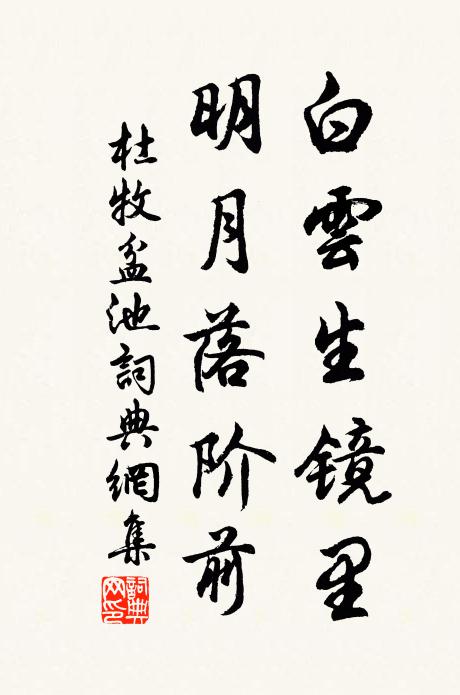 白雲生镜里
明月落阶前
杜牧盆池詞典網集
詞典网印